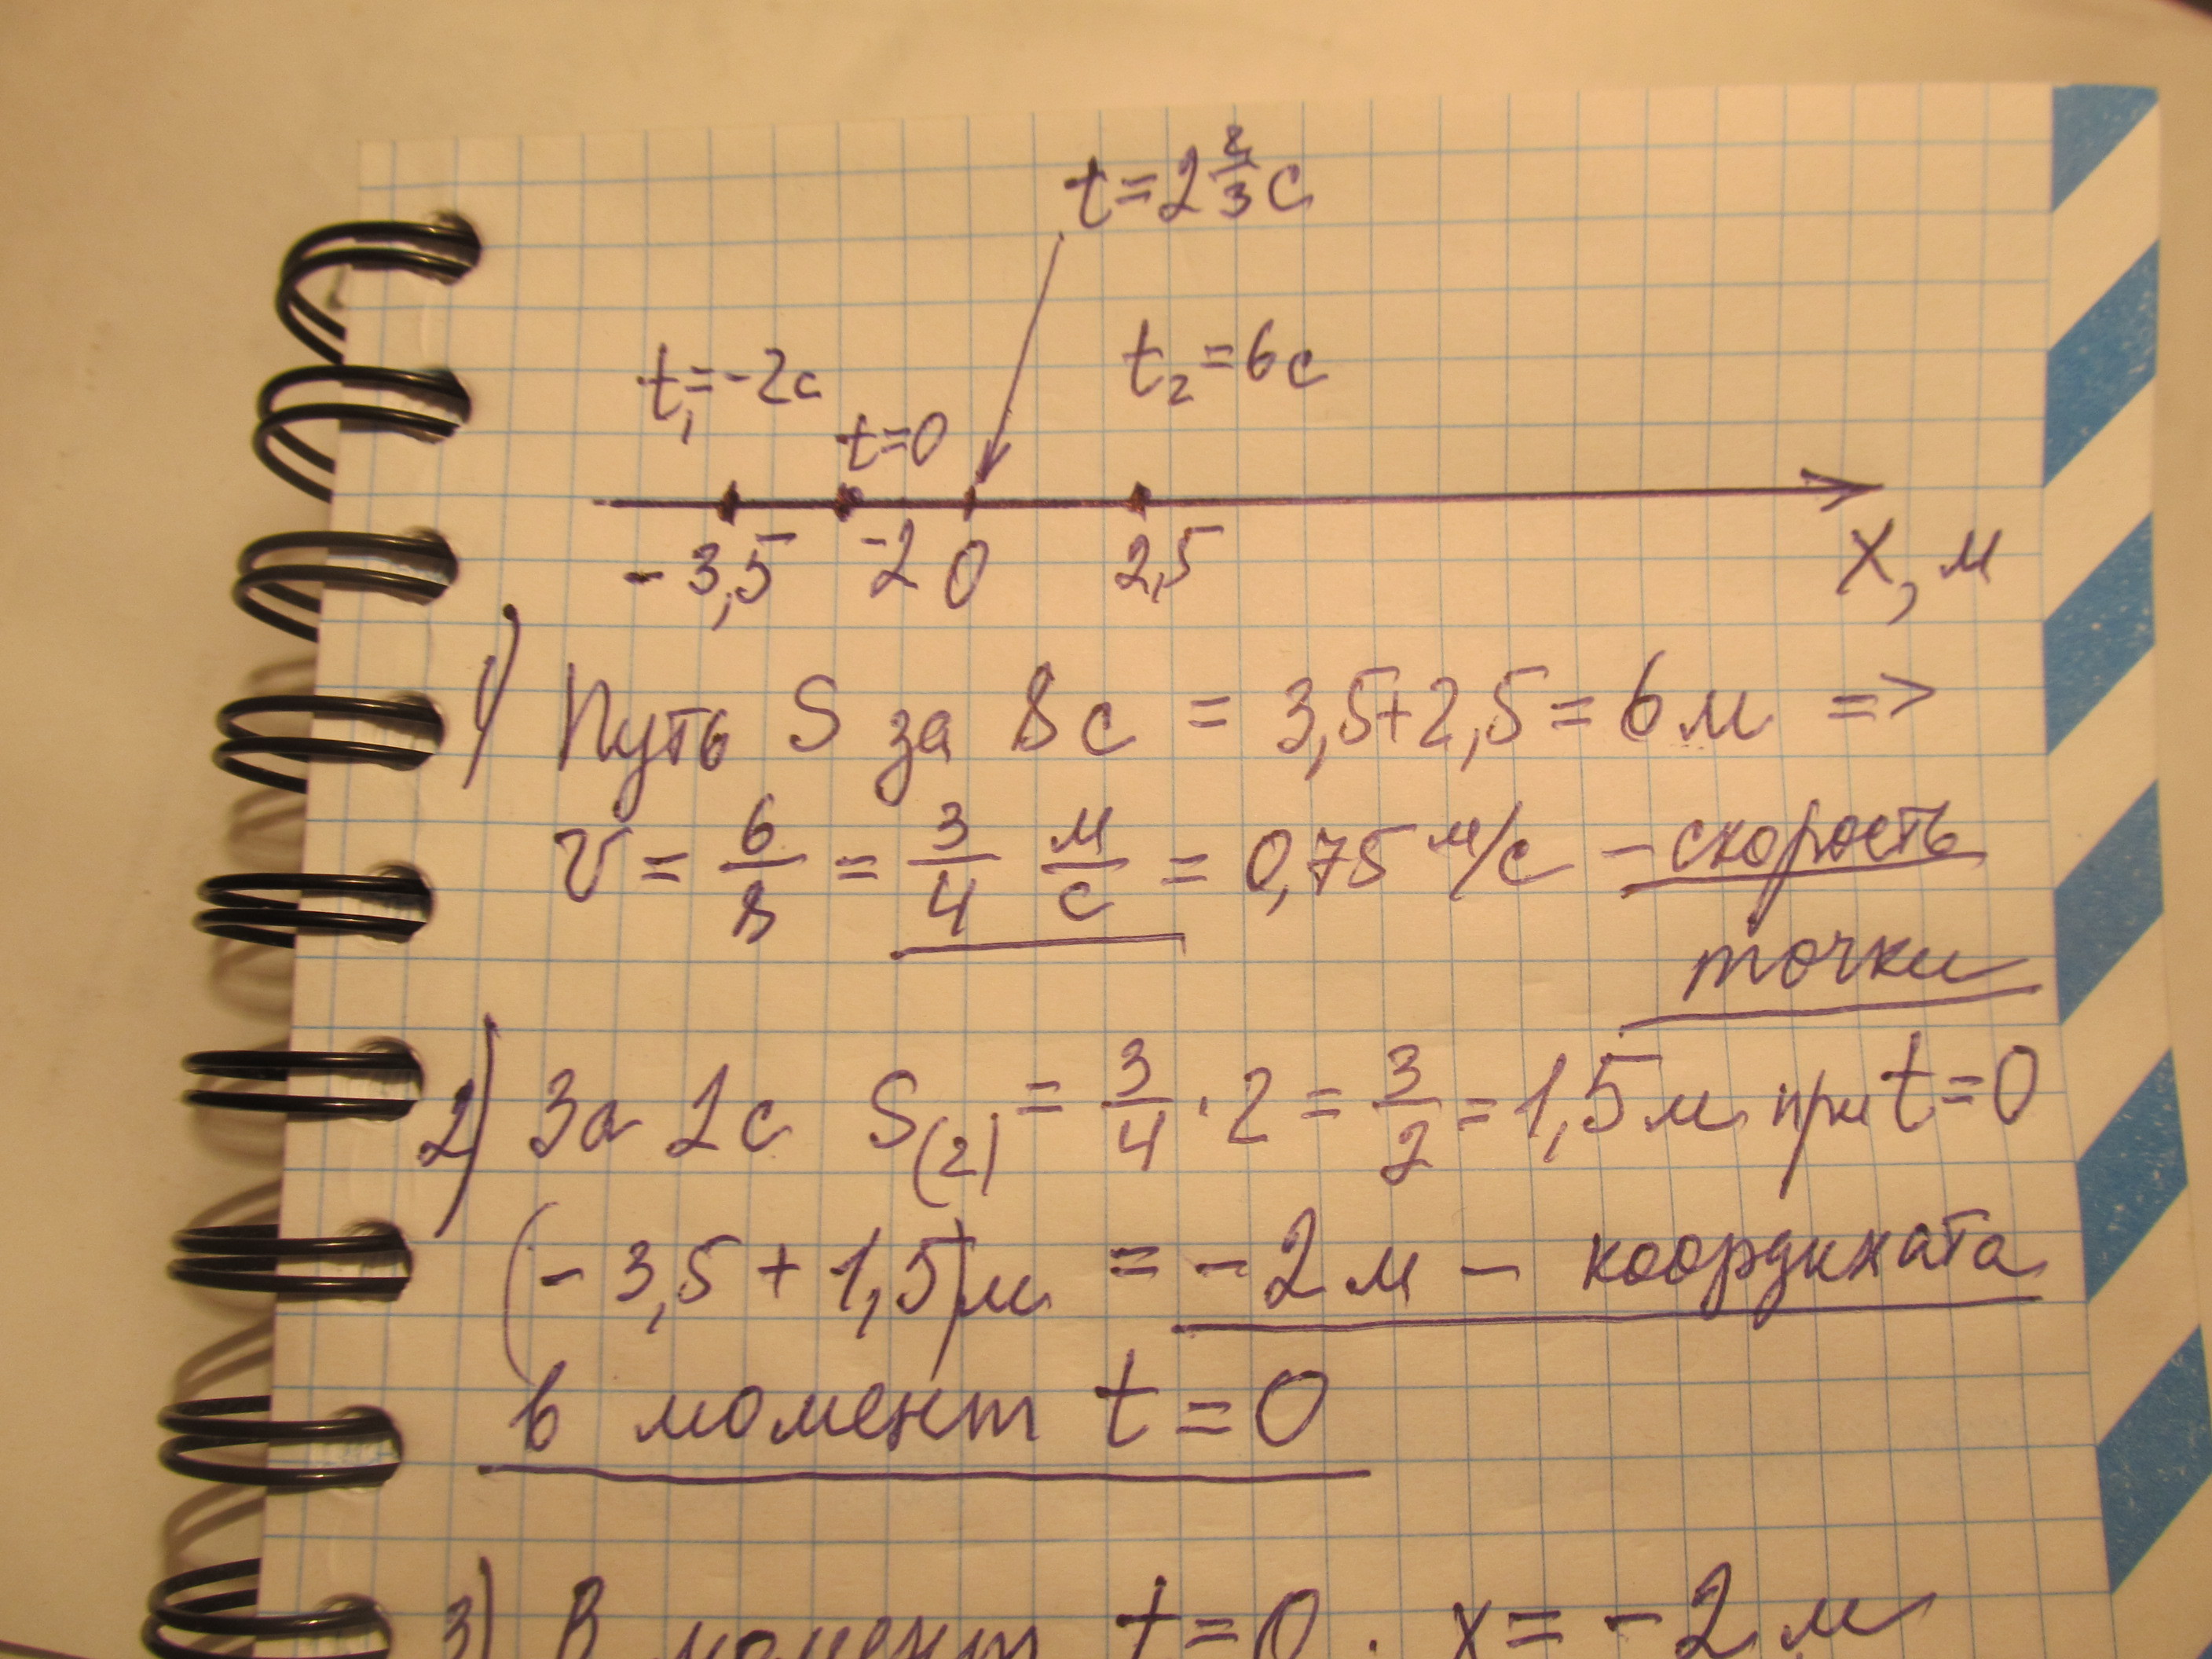 t=2 2/3 с
t₁=-2с
t₂=6с
t=0
-3,5 -2 0 2,5
x, м
1) Путь S за 8с = 3,5+2,5=6м =>
v = 6/8 = 3/4 м/с = 0,75 м/с – скорость
точки
2) За 2с S(2) = 3/4 · 2 = 3/2 = 1,5м при t=0
(-3,5+1,5)м = -2м – координата
в момент t=0
3) В момент t=0 . x= -2м